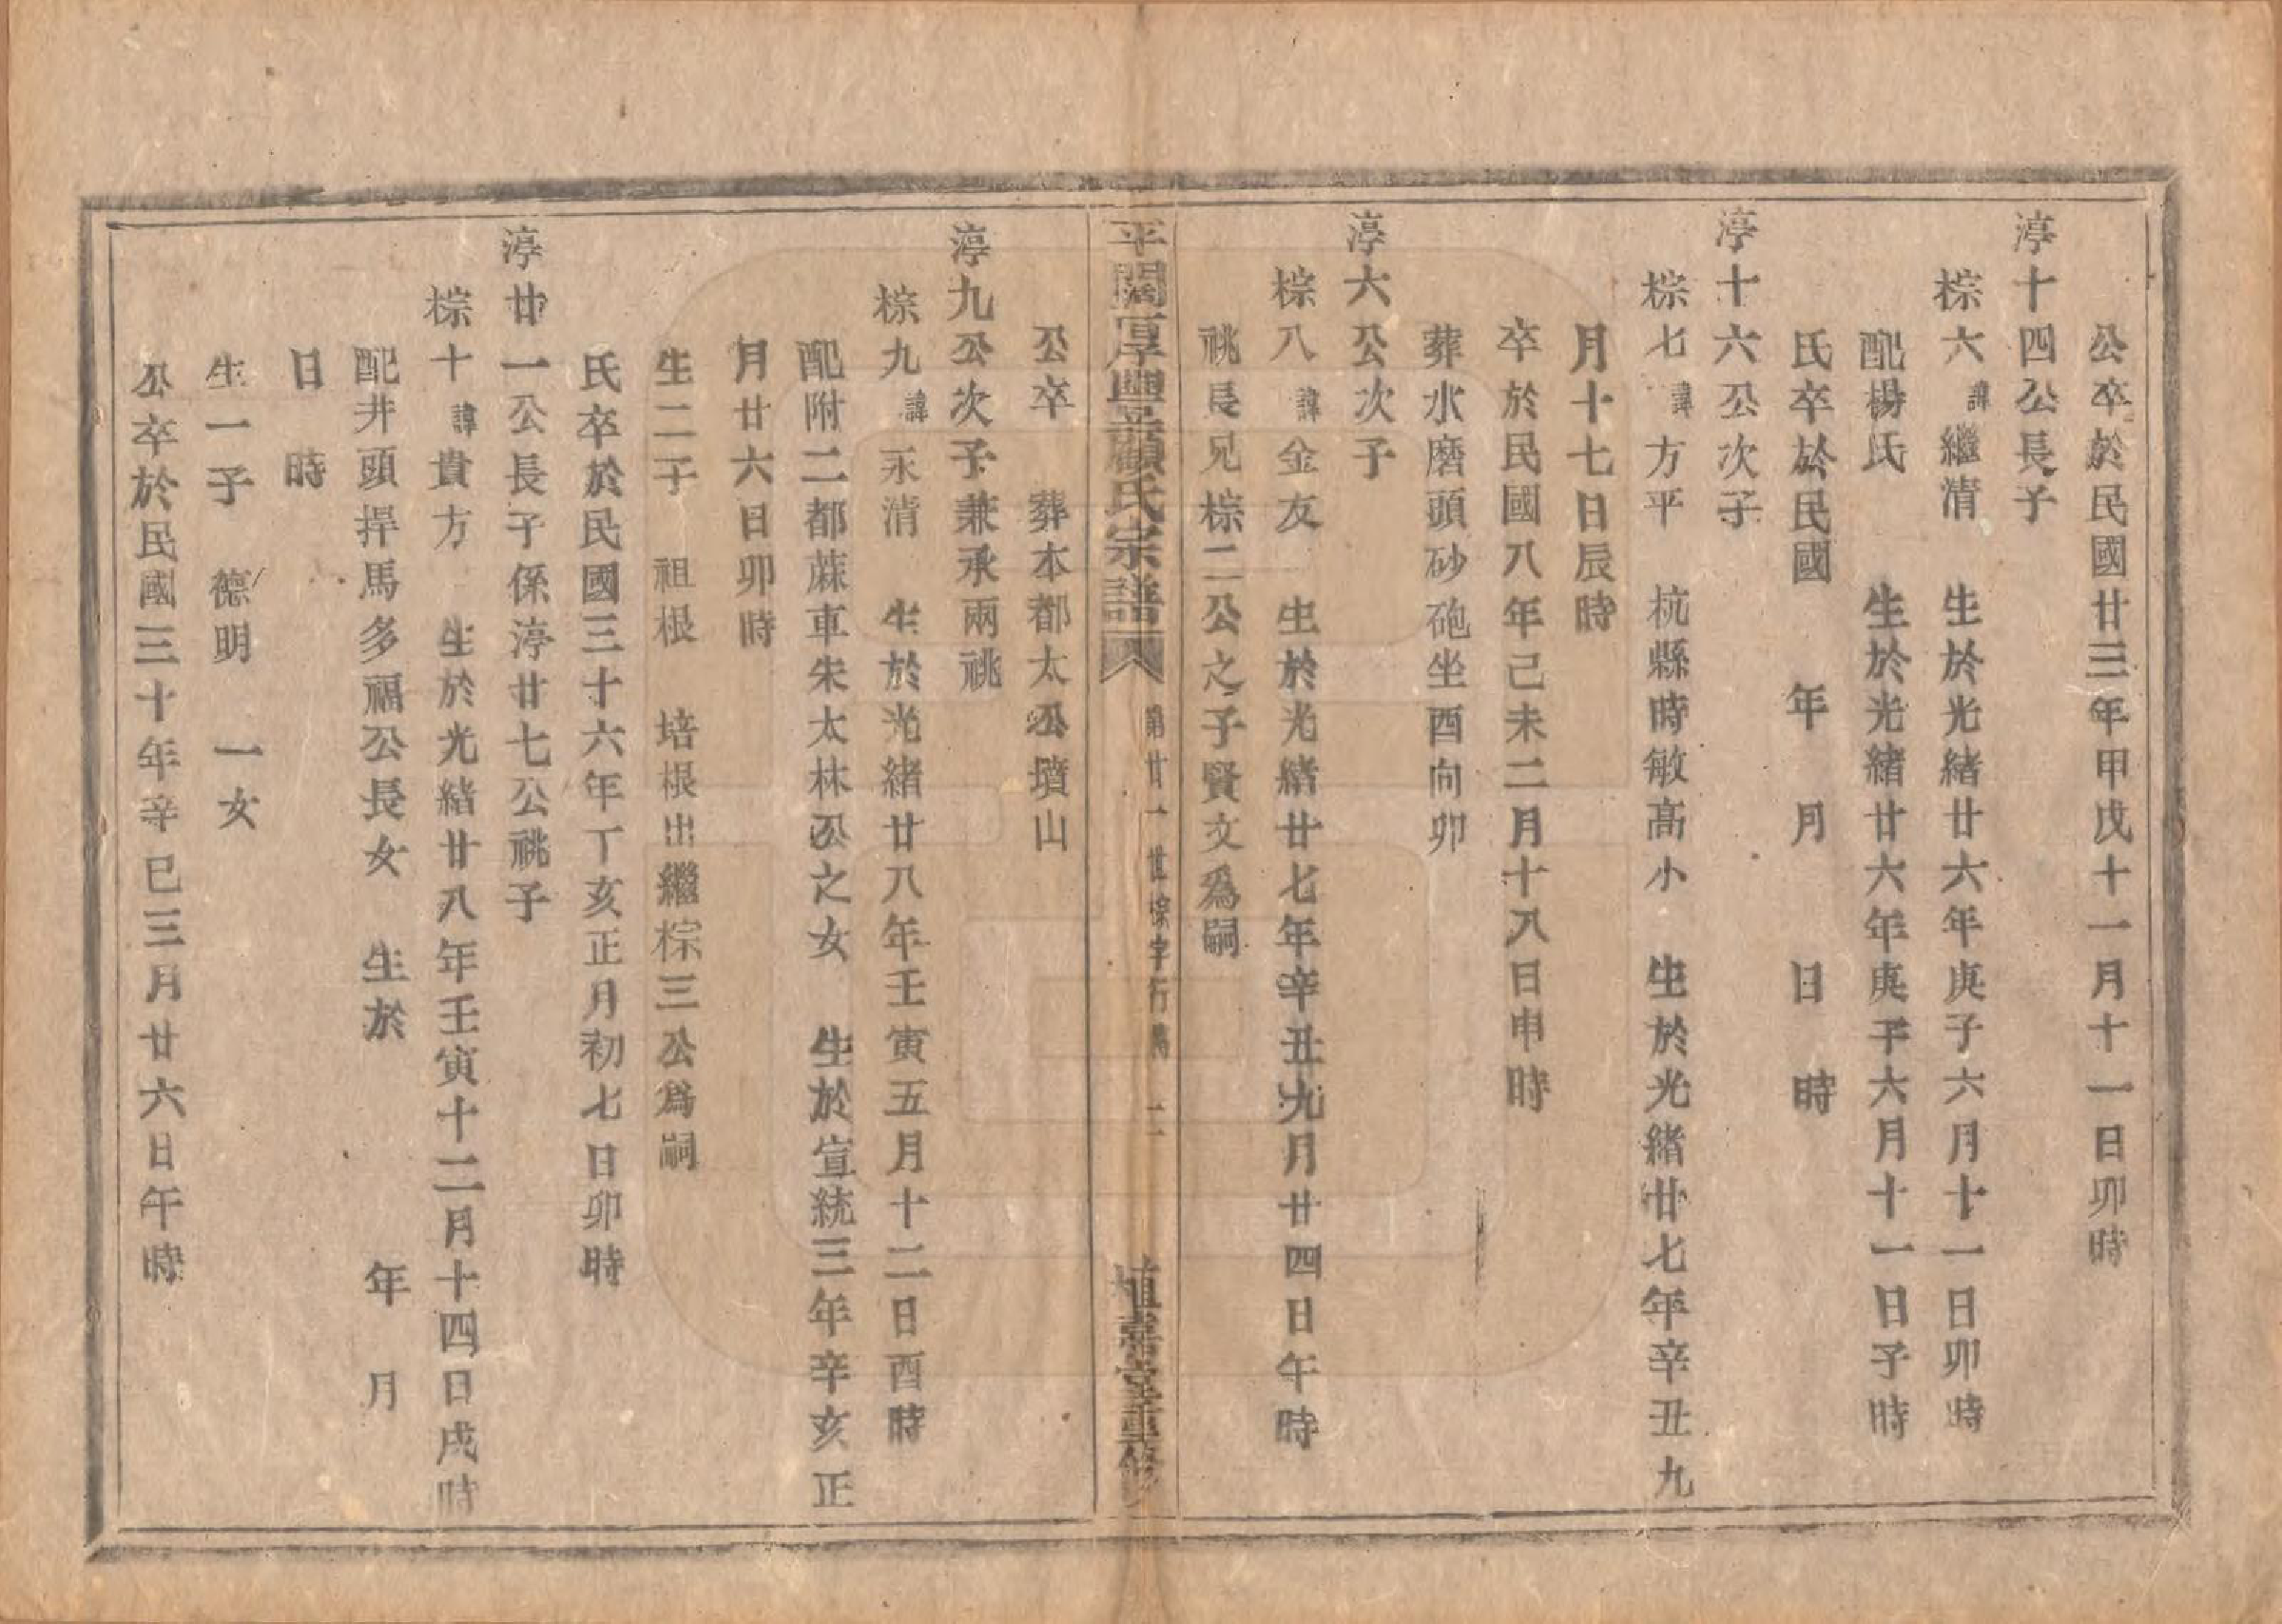 公卒於民國廿三年甲戊十一月十一日卯時
渟十四公長子
棕六諱繼清 生於光緒廿六年庚子六月十一日卯時
配楊氏 生於光緒廿六年庚子六月十一日子時
氏卒於民國 年 月 日 時
渟十六公次子
棕七諱方平 杭縣時敏高小 生於光緒廿七年辛丑九
月十七日辰時
卒於民國八年己未二月十八日申時
葬水磨頭砂砲坐酉向卯
渟六公次子
棕八諱金友 生於光緒廿七年辛丑九月廿四日午時
祧長兄棕二公之子賢文爲嗣
平閣厚豐顧氏宗譜 第廿一世棕字行傳 二 植嘉堂重修
公卒 葬本都太公墳山
渟九公次子兼承兩祧
棕九諱永清 生於光緒廿八年壬寅五月十二日酉時
配附二都蔴車朱太林公之女 生於宣統三年辛亥正
月廿六日卯時
生二子 祖根 培根出繼棕三公爲嗣
氏卒於民國三十六年丁亥正月初七日卯時
渟廿一公長子係渟廿七公祧子
棕十諱貴方 生於光緒廿八年壬寅十二月十四日戌時
配井頭捍馬多福公長女 生於 年 月
日 時
生一子 德明 一女
公卒於民國三十年辛巳三月廿六日午時